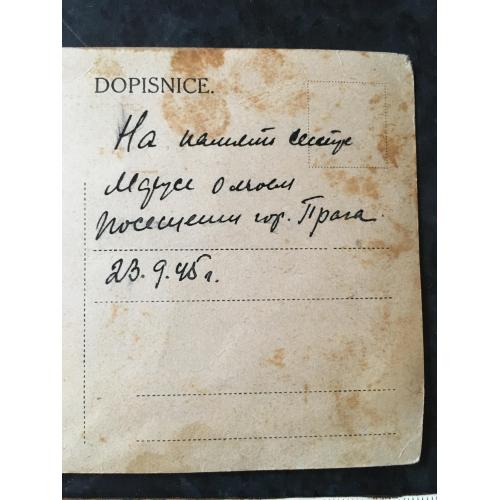 DOPISNICE.
На память сестре
Марусе о моем
посещении гор. Прага.
23.9.45 г.